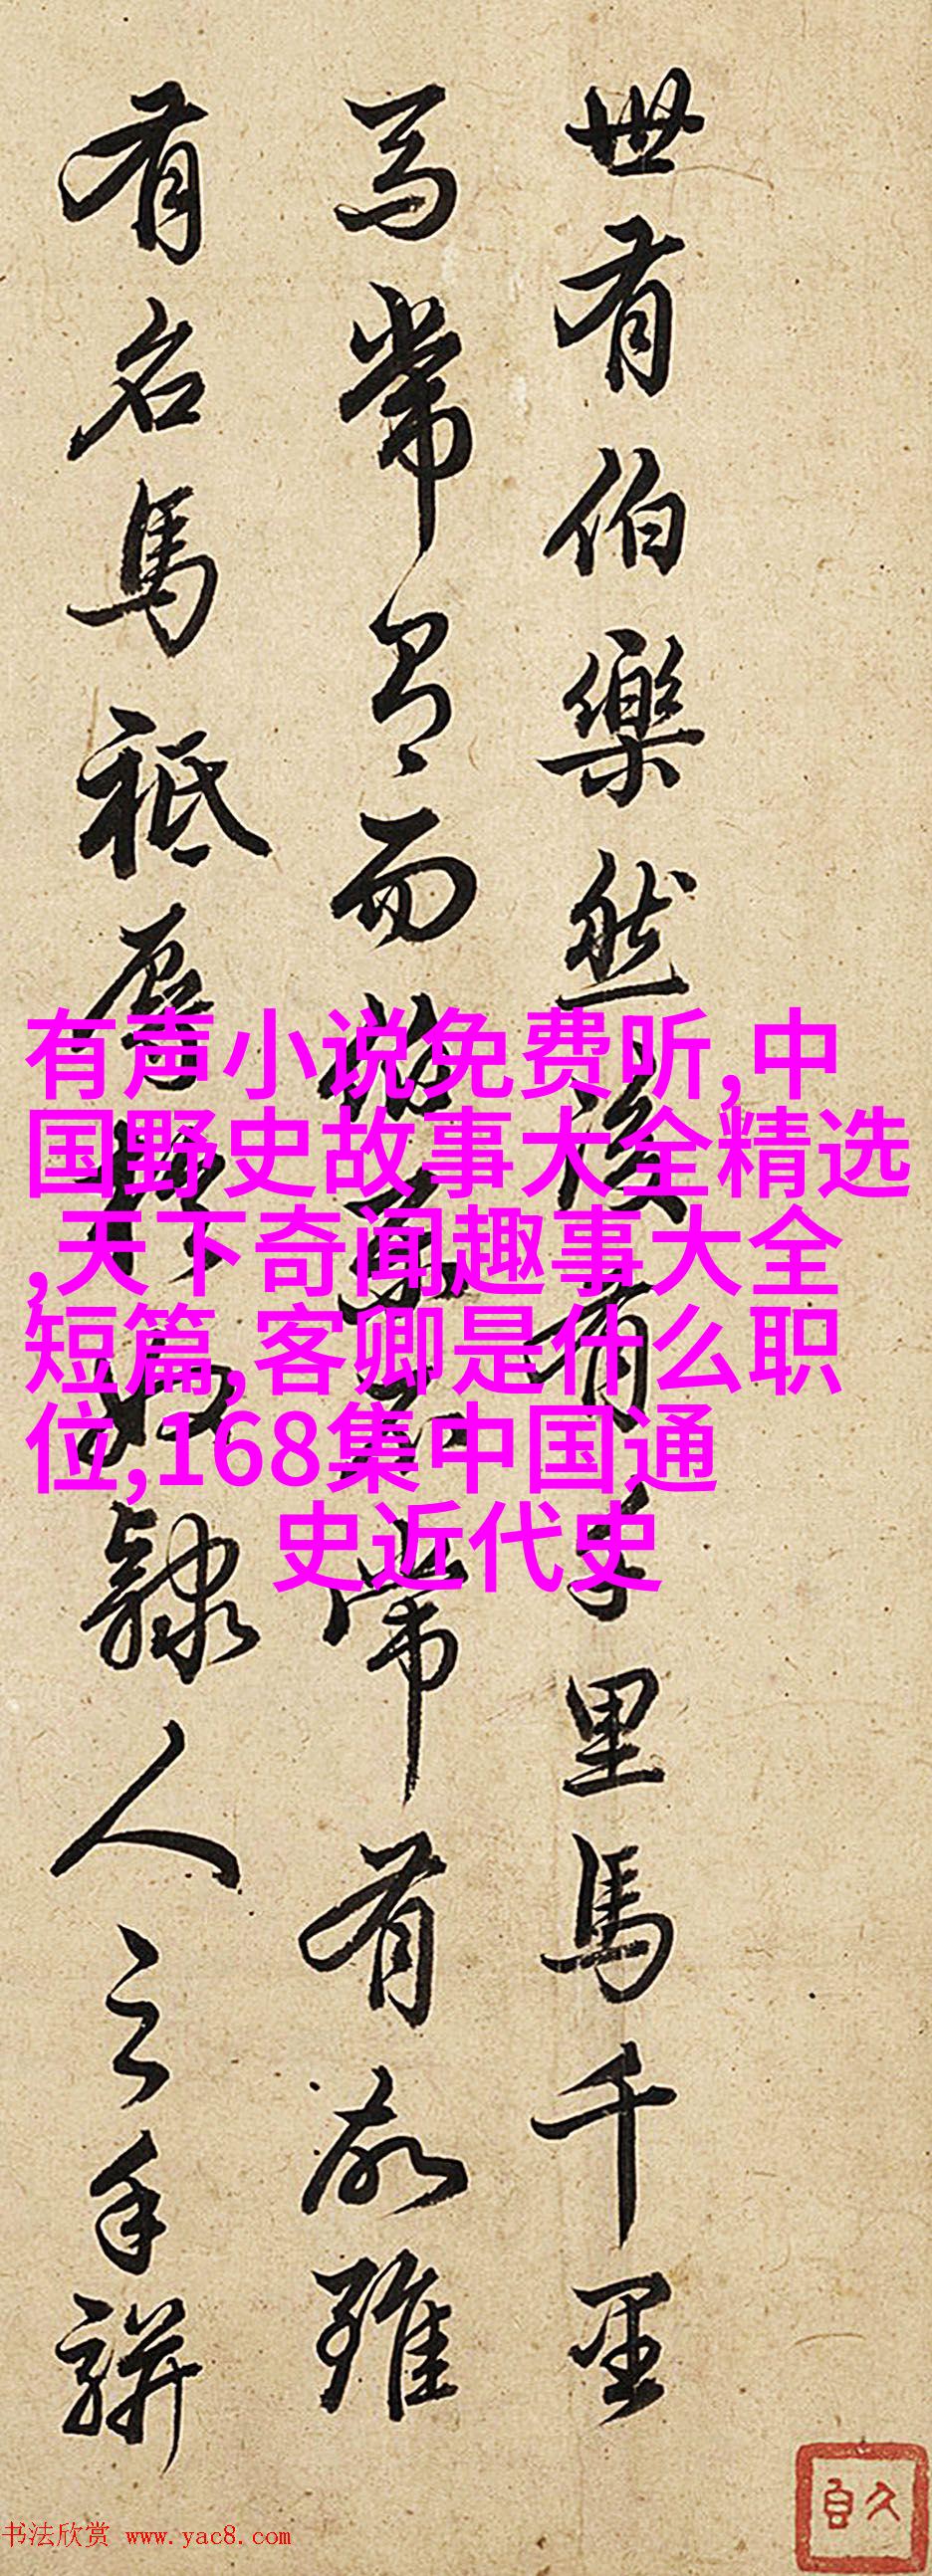 世有伯樂然後有千里馬千里
馬常有而伯樂不常有故雖
有名馬祇辱於奴隸人之手駢
有声小说免费听,中
国野史故事大全精选
,天下奇闻趣事大全
短篇,客卿是什么职
位,168集中国通
史近代史
书法欣赏 www.yac8.com